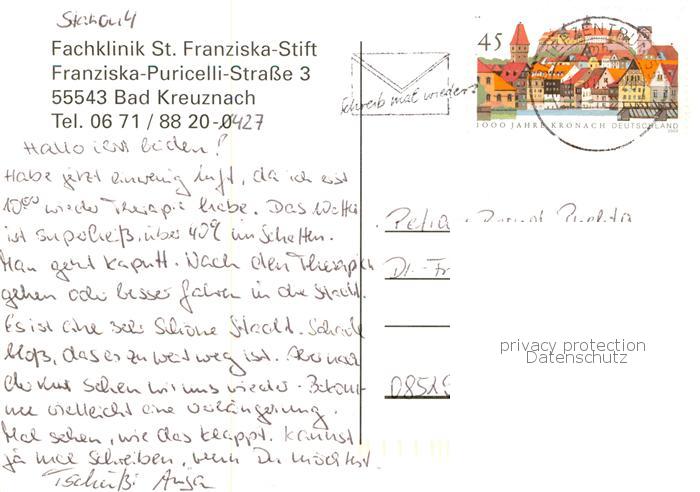 Station 4
Fachklinik St. Franziska-Stift
Franziska-Puricelli-Straße 3
55543 Bad Kreuznach
Tel. 06 71 / 88 20-0427
Hallo ihr beiden!
Habe jetzt einwenig Luft, da ich erst
10⁰⁰ wieder Therapie habe. Das Wetter
ist superheiß, über 40°C im Schatten.
Man geht kaputt. Nach den Therapien
gehen oder besser fahren in die Stadt.
Es ist eine sehr schöne Stadt. Schade
bloß, das es zu weit weg ist. Aber nach
der Kur sehen wir uns wieder. Bekom-
me vielleicht eine Verlängerung.
Mal sehen, wie das klappt. Kannst
ja mal schreiben, wenn Du möchtest.
Tschüßi Anja
Schreib mal wieder
45
1000 JAHRE KRONACH DEUTSCHLAND
Petra
Dr.-Fr
0851
privacy protection
Datenschutz